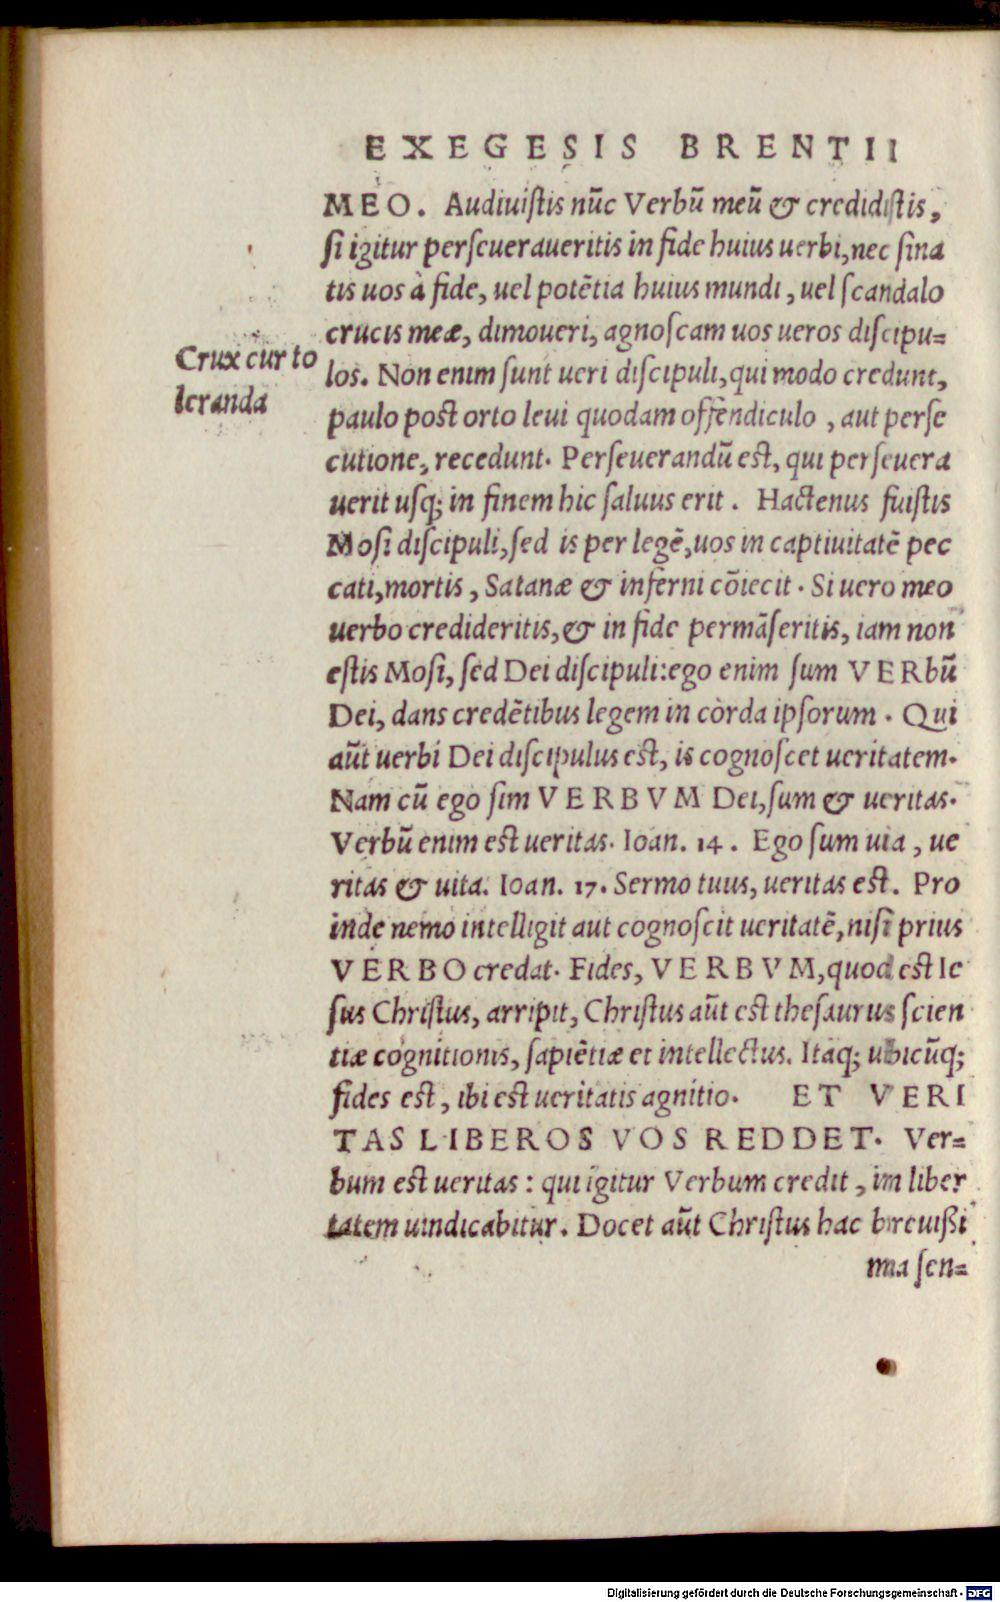 EXEGESIS BRENTII
MEO. Audiuiſtis nūc Verbū meū & credidiſtis,
ſi igitur perſeueraueritis in fide huius uerbi, nec ſina
tis uos à fide, uel potētia huius mundi, uel ſcandalo
crucis meæ, dimoueri, agnoſcam uos ueros diſcipu=
Crux cur to
leranda
los. Non enim ſunt ueri diſcipuli, qui modo credunt,
paulo post orto leui quodam offendiculo, aut perſe
cutione, recedunt. Perſeuerandū est, qui perſeuera
uerit uſq; in finem hic ſaluus erit. Hactenus fuiſtis
Moſi diſcipuli, ſed is per legē, uos in captiuitatē pec
cati, mortis, Satanæ & inferni cōiecit. Si uero meo
uerbo credideritis, & in fide permāſeritis, iam non
eſtis Moſi, ſed Dei diſcipuli: ego enim ſum VERbū
Dei, dans credētibus legem in còrda ipſorum. Qui
aūt uerbi Dei diſcipulus est, is cognoſcet ueritatem.
Nam cū ego ſim VERBVM Dei, ſum & ueritas.
Verbū enim est ueritas. Ioan. 14. Ego ſum uia, ue
ritas & uita. Ioan. 17. Sermo tuus, ueritas est. Pro
inde nemo intelligit aut cognoſcit ueritatē, niſi prius
VERBO credat. Fides, VERBVM, quod est Ie
ſus Chriſtus, arripit, Chriſtus aūt est theſaurus ſcien
tiæ cognitionis, ſapiētiæ et intellectus. Itaq; ubicūq;
fides est, ibi est ueritatis agnitio. ET VERI
TAS LIBEROS VOS REDDET. Ver=
bum est ueritas: qui igitur Verbum credit, im liber
tatem uindicabitur. Docet aūt Chriſtus hac breuißi
ma ſen=
Digitalisierung gefördert durch die Deutsche Forschungsgemeinschaft - DFG